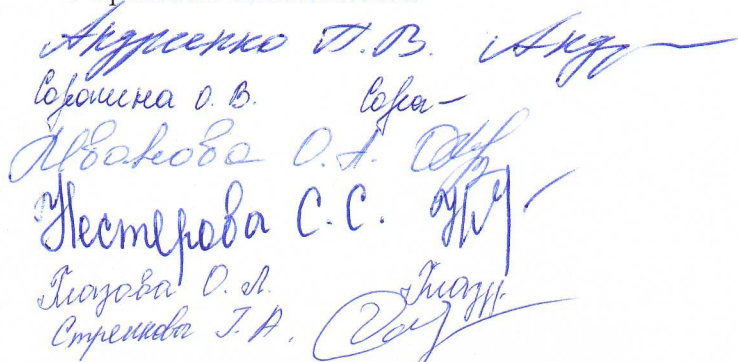 Андриенко П.В. Андр
Сорокина О.В. Соро
Иванова О.А.
Нестерова С.С.
Глазова О.Л. Глаз
Стрелкова Г.А.